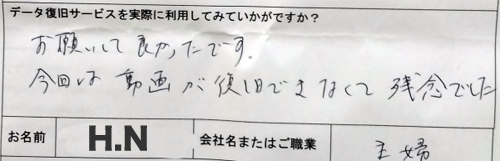 データ復旧サービスを実際に利用してみていかがですか？
お願いして良かったです.
今回は動画が復旧できなくて残念でした
お名前 H.N 会社名またはご職業 主婦